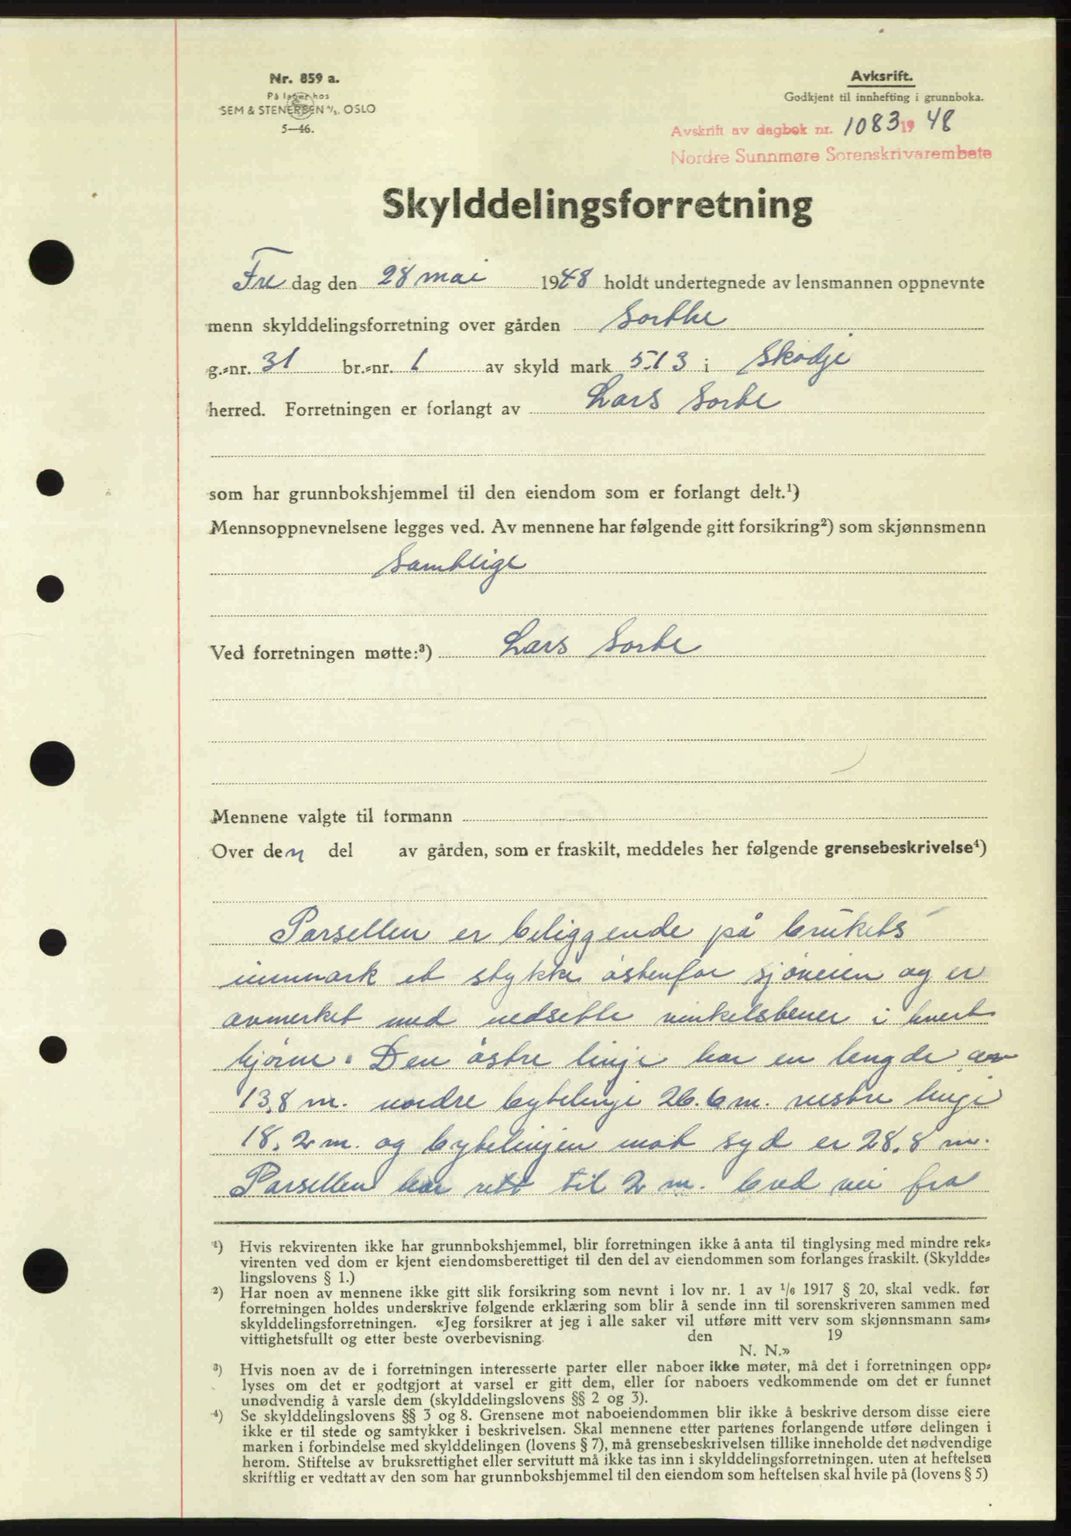 Nr. 859 a.
På lager hos
SEM & STENERSEN A/S. OSLO
5—46.
Avksrift.
Godkjent til innhefting i grunnboka.
Avskrift av dagbok nr. 1083 1948
Nordre Sunnmøre Sorenskrivarembete
Skylddelingsforretning
Fre dag den 28 mai 1948 holdt undertegnede av lensmannen oppnevnte
menn skylddelingsforretning over gården Sortke
g.-nr. 31 br.-nr. 1 av skyld mark 5.13 i Skodje
herred. Forretningen er forlangt av Lars Sorte
som har grunnbokshjemmel til den eiendom som er forlangt delt.¹)
Mennsoppnevnelsene legges ved. Av mennene har følgende gitt forsikring²) som skjønnsmenn
Samtlige
Ved forretningen møtte:³) Lars Sorte
Mennene valgte til formann
Over den del av gården, som er fraskilt, meddeles her følgende grensebeskrivelse⁴)
Parsellen er beliggende på brukets
innmark et stykke østenfor sjøveien og er
avmerket med nedsette vinkelstener i hvert
hjørne. Den østre linje har en lengde av
13,8 m. nordre bytelinje 26.6 m. vestre linje
18,2 m. og bytelinjen mot syd er 28,8 m.
Parsellen har rett til 2 m. bred vei fra
¹) Hvis rekvirenten ikke har grunnbokshjemmel, blir forretningen ikke å anta til tinglysing med mindre rek-
virenten ved dom er kjent eiendomsberettiget til den del av eiendommen som forlanges fraskilt. (Skyldde-
lingslovens § 1.)
²) Har noen av mennene ikke gitt slik forsikring som nevnt i lov nr. 1 av 1/6 1917 § 20, skal vedk. før
forretningen holdes underskrive følgende erklæring som blir å sende inn til sorenskriveren sammen med
skylddelingsforretningen. «Jeg forsikrer at jeg i alle saker vil utføre mitt verv som skjønnsmann sam-
vittighetsfullt og etter beste overbevisning. den 19
N. N.»
³) Hvis noen av de i forretningen interesserte parter eller naboer ikke møter, må det i forretningen opp-
lyses om det er godtgjort at varsel er gitt dem, eller for naboers vedkommende om det er funnet
unødvendig å varsle dem (skylddelingslovens §§ 2 og 3).
⁴) Se skylddelingslovens §§ 3 og 8. Grensene mot naboeiendommen blir ikke å beskrive dersom disse eiere
ikke er til stede og samtykker i beskrivelsen. Skal mennene etter partenes forlangende utføre delingen i
marken i forbindelse med skylddelingen (lovens § 7), må grensebeskrivelsen tillike inneholde det nødvendige
herom. Stiftelse av bruksrettighet eller servitutt må ikke tas inn i skylddelingsforretningen. uten at heftelsen
skriftlig er vedtatt av den som har grunnbokshjemmel til den eiendom som heftelsen skal hvile på (lovens § 5)